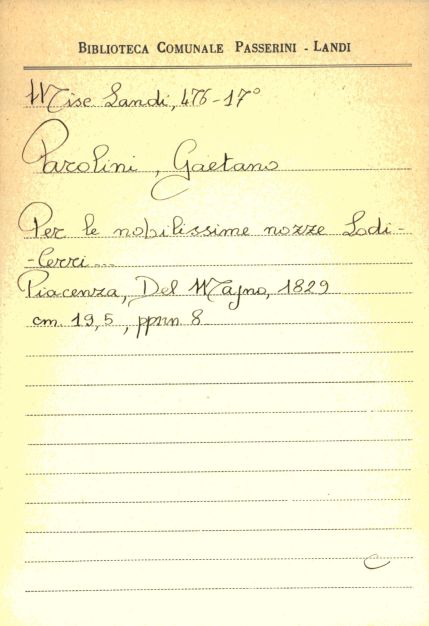 BIBLIOTECA COMUNALE PASSERINI - LANDI
Misc Landi, 476-17°
Parolini, Gaetano
Per le nobilissime nozze Lodi-
-Cerri...
Piacenza, Del Majno, 1829
cm. 19,5, ppnn 8
C